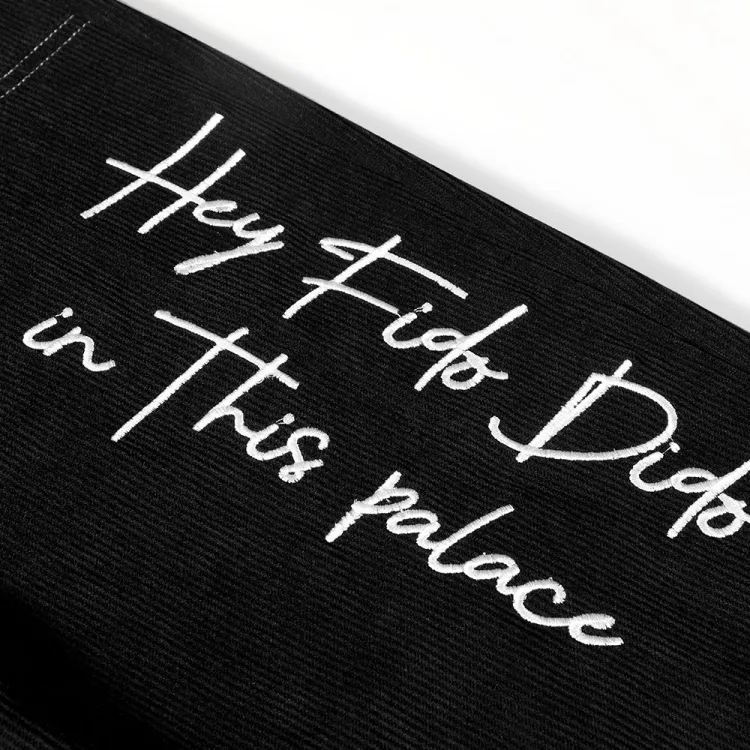 Hey Fido Dido
in This palace